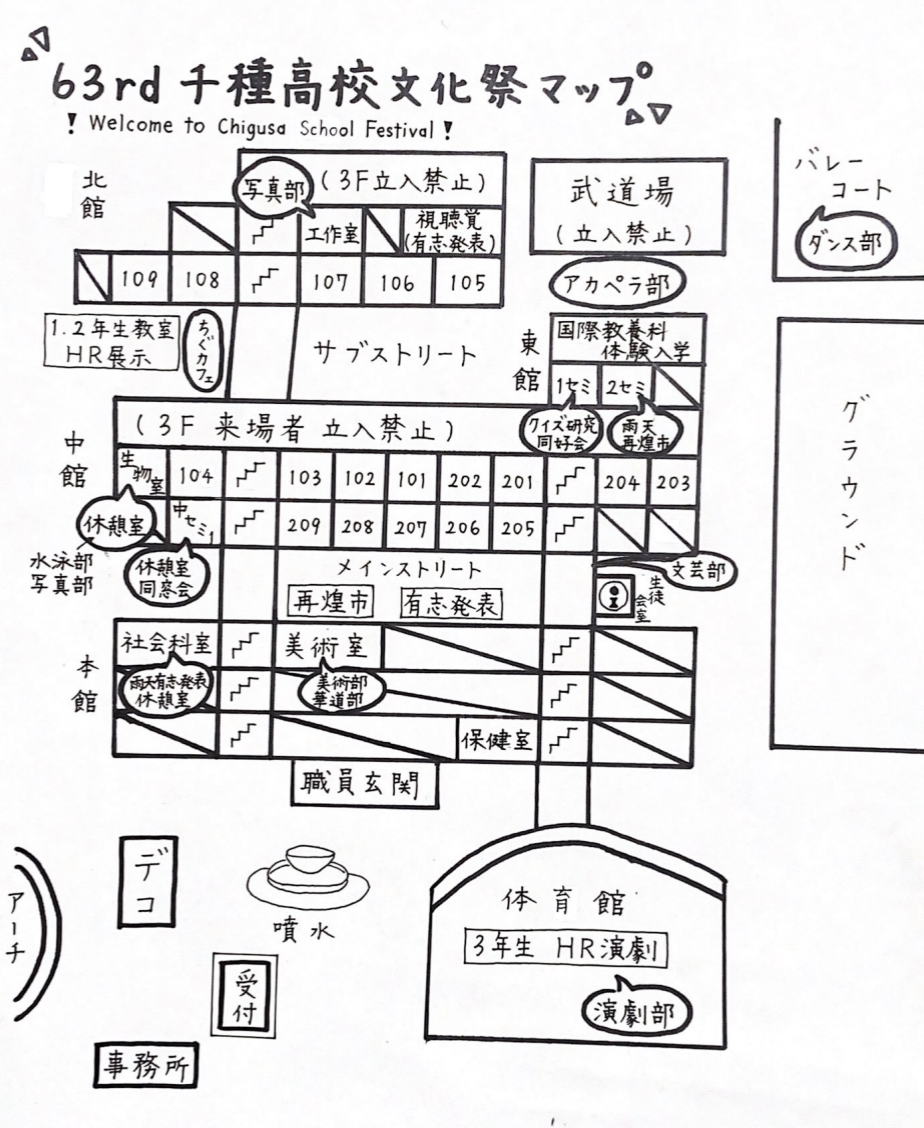 63rd 千種高校文化祭マップ
! Welcome to Chigusa School Festival !
北館
写真部
(3F立入禁止)
工作室
視聴覚
(有志発表)
109
108
107
106
105
武道場
(立入禁止)
アカペラ部
バレー
コート
ダンス部
1.2年生教室
HR展示
ちぐカフェ
サブストリート
東館
国際教養科
体験入学
1セミ
2セミ
クイズ研究
同好会
雨天
再煌市
グラウンド
中館
(3F 来場者 立入禁止)
生物室
104
103
102
101
202
201
204
203
休憩室
中セミ1
209
208
207
206
205
水泳部
写真部
休憩室
同窓会
メインストリート
再煌市
有志発表
文芸部
生徒会室
本館
社会科室
美術室
雨天有志発表
休憩室
美術部
華道部
保健室
職員玄関
アーチ
デコ
噴水
受付
事務所
体育館
3年生 HR演劇
演劇部